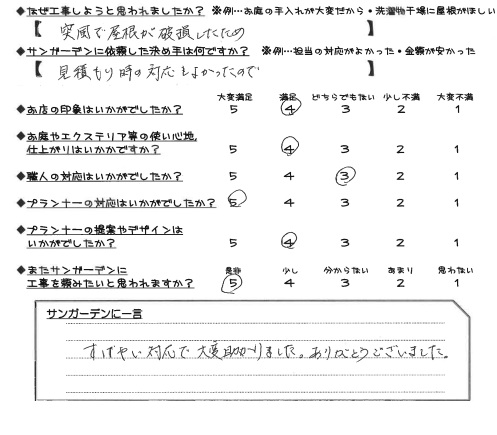 ◆なぜ工事しようと思われましたか？ ※例…お庭の手入れが大変だから・洗濯物干場に屋根がほしい
【 突風で屋根が破損したため 】
◆サンガーデンに依頼した決め手は何ですか？ ※例…担当の対応がよかった・金額が安かった
【 見積もり時の対応もよかったので 】
大変満足 満足 どちらでもない 少し不満 大変不満
◆お店の印象はいかがでしたか？ 5 4 3 2 1
◆お庭やエクステリア等の使い心地,
仕上がりはいかがですか？ 5 4 3 2 1
◆職人の対応はいかがでしたか？ 5 4 3 2 1
◆プランナーの対応はいかがでしたか？ 5 4 3 2 1
◆プランナーの提案やデザインは
いかがでしたか？ 5 4 3 2 1
◆またサンガーデンに 是非 少し 分からない あまり 思わない
工事を頼みたいと思われますか？ 5 4 3 2 1
サンガーデンに一言
すばやい対応で大変助かりました。ありがとうございました。